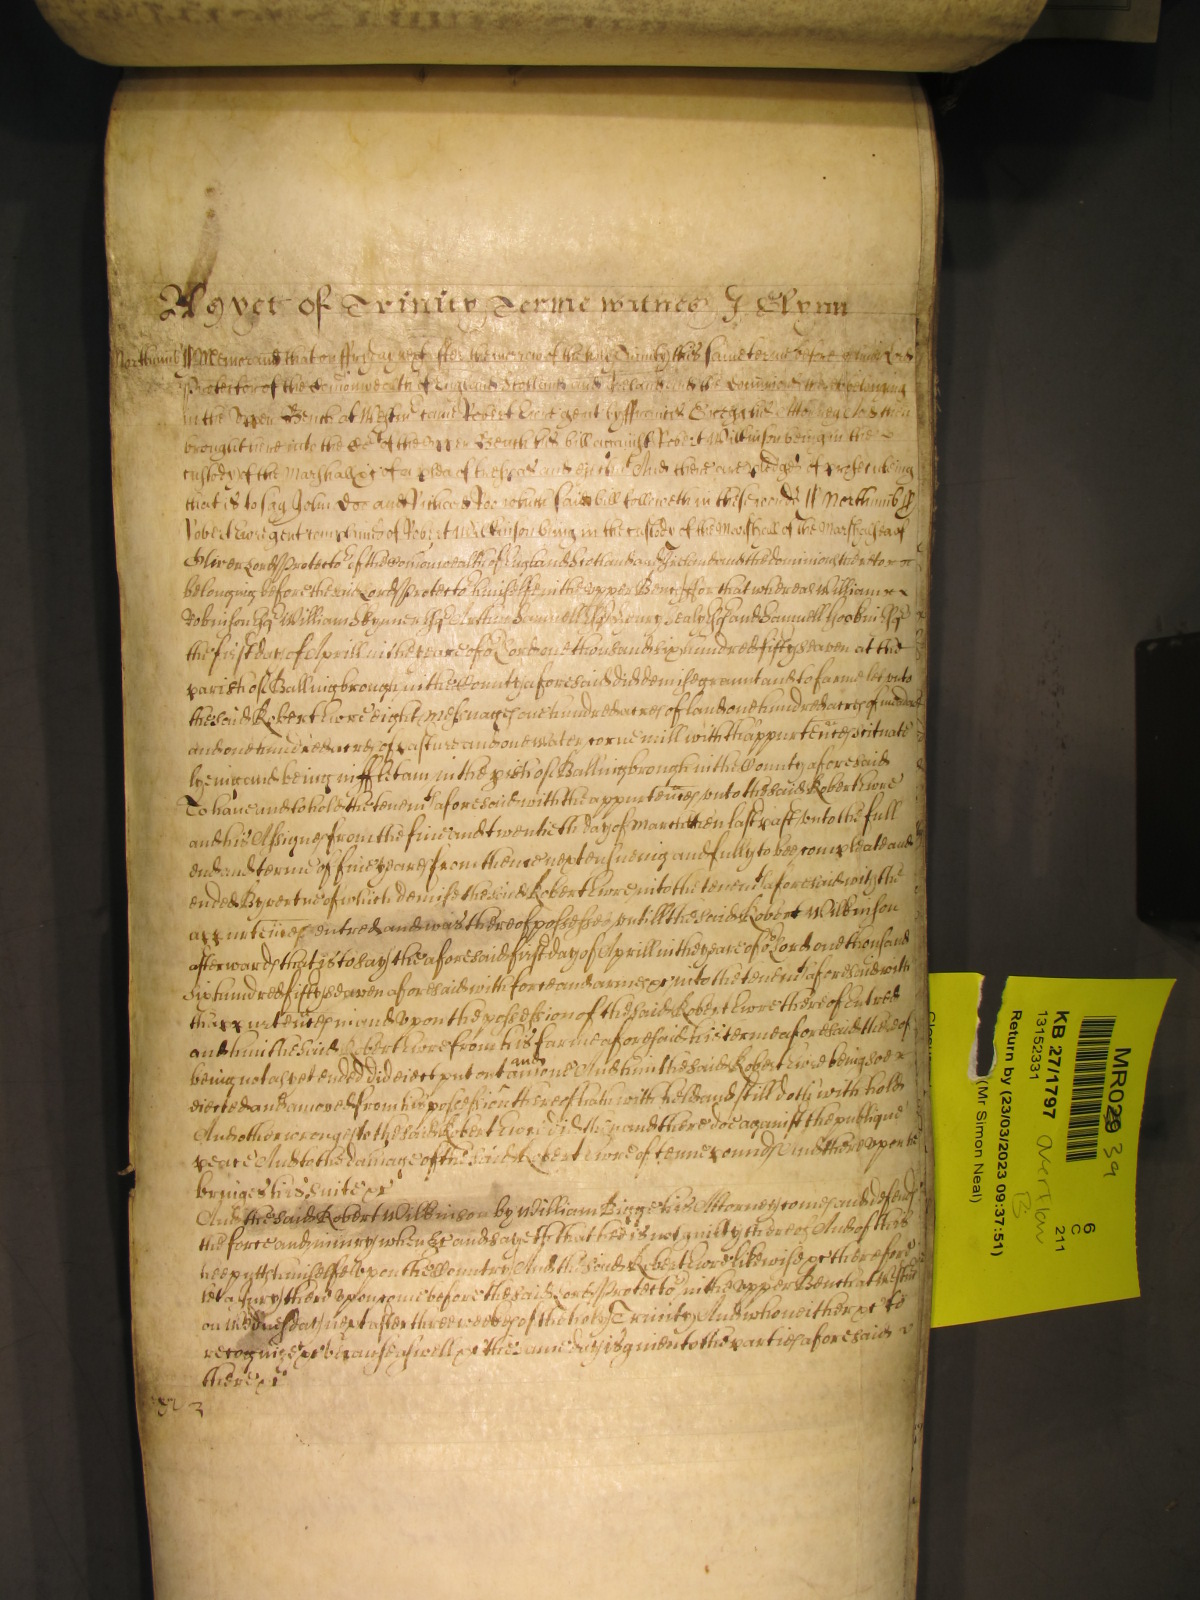 As yet of Trinity Terme witnes J Glynn
Northumb ss Memorand that on ffryday next after the morrow of the holy Trinity this same terme before Oliver Lord
Protector of the Comonwealth of England Scotland and Ireland and the dominions thereto belonging
in the Upper Bench at Westmr came Robert Lore gent by ffrancis his Attorney And then
brought here into the Cort of the Upper Bench his bill against Robert Wilkinson being in the
custody of the Marshall &c of a plea of trespas and eiectmt And there are pledges of prosecuteing
that is to say John Doe and Richard Roe which said bill followeth in these words ss Northumb ss
Robert Lore gent complaines of Robert Wilkinson being in the custody of the Marshall of the Marshalsea of
Oliver Lord Protector of the Comonwealth of England Scotland and Ireland and the dominions thereto
belonging before the said Lord Protector himselfe in the upper Bench ffor that whereas William
Robinson Esqr William Skynner Esqr Arthur Samuell Esqr Henry Esqr and Samuell Hoskin Esqr
the first day of Aprill in the yeare of or Lord one thousand six hundred fifty seaven at the
parish of Ballingbrough in the County aforesaid did demise graunt and to farme let unto
the said Robert Lore eight Messuages one hundred acres of land one hundred acres of meadow
and one hundred acres of pasture and one water corne mill with thappurtences scituate
lyeing and being in ffletam in the pish of Ballingbrough in the County aforesaid
To have and to hold the tenemts aforesaid with the appurtences unto the said Robert Lore
and his Assignes from the five and twentieth day of March then last past unto the full
end and terme of five yeares from thence next ensueing and fully to bee compleate and
ended By vertue of which demise the said Robert Lore into the tenemts aforesaid with the
appurtences entred and was thereof possessed untill the said Robert Wilkinson
afterwards that is to say the aforesaid first day of Aprill in the yeare of or Lord one thousand
six hundred fifty seaven aforesaid with force and armes &c into the tenemts aforesaid with
thappurtences in and upon the possession of the said Robert Lore thereof entred
and him the said Robert Lore from his farme aforesaid his terme aforesaid thereof
being not as yet ended did eiect put out and amove And him the said Robert Lore being soe
eiected and amoved from his possession thereof hath with held and still doth with hold
And other wronges to the said Robert Lore did then and there doe against the publique
peace And to the damage of the said Robert Lore of tenne pounds And thereupon he
bringes his suite &c
And the said Robert Wilkinson by William Brigge his Attorney comes and defends
the force and iniury when &c and sayeth that hee is not guilty thereof And of this
hee putts himselfe upon the Country And the said Robert Lore likewise &c therefore
let a Jury thereupon come before the said Lord Protector in the upper Bench at Westmr
on Wednesday next after three weekes of the holy Trinity And who neither &c to
recognize &c because as well &c the same day is given to the parties aforesaid
there &c
MR029 39
KB 27/1797
13152331
Return by (23/03/2023 09:37:51)
(Mr Simon Neal)
Overflow
6
C
211